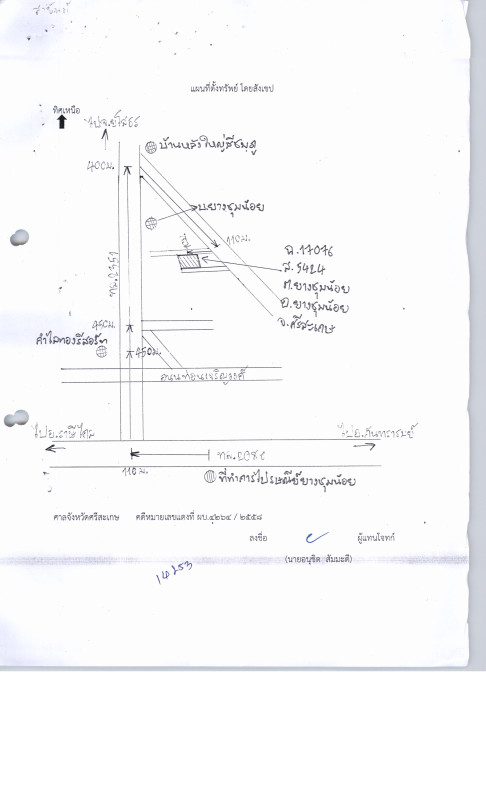 แผนที่ตั้งทรัพย์ โดยสังเขป
ทิศเหนือ
ไปจ.ยโสธร
บ้านหลังใหญ่สีชมพู
400ม.
บ.ยางชุมน้อย
110 ม.
ฉ.17076
ส.5424
ต.ยางชุมน้อย
อ.ยางชุมน้อย
จ.ศรีสะเกษ
450ม.
คำไสทองรีสอร์ท
450ม.
ไปอ.ราษีไศล
ไปอ.กันทรารมย์
110 ม.
ที่ทำการไปรษณีย์ยางชุมน้อย
ศาลจังหวัดศรีสะเกษ คดีหมายเลขแดงที่ ผบ.๔๒๖๔ / ๒๕๕๘
ลงชื่อ ผู้แทนโจทก์
(นายอนุชิต สัมมะดี)